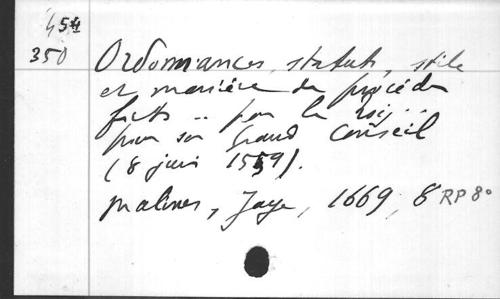 454
350
Ordonnances, statuts, stile
et manière de procéder
faits .. par le roij...
pour son Grand Conseil
(8 juin 1559).
Malines, Jaye, 1669, 8 RP 8°